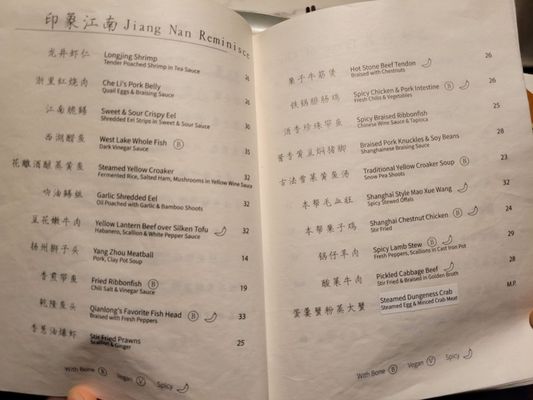 印象江南 Jiang Nan Reminisce
龙井虾仁 Longjing Shrimp 26
Tender Poached Shrimp in Tea Sauce
浙里红烧肉 Che Li's Pork Belly 26
Quail Eggs & Braising Sauce
江南脆鳝 Sweet & Sour Crispy Eel 30
Shredded Eel Strips in Sweet & Sour Sauce
西湖醋鱼 West Lake Whole Fish Ⓑ 35
Dark Vinegar Sauce
花雕酒酿蒸黄鱼 Steamed Yellow Croaker 32
Fermented Rice, Salted Ham, Mushrooms in Yellow Wine Sauce
响油鳝丝 Garlic Shredded Eel 32
Oil Poached with Garlic & Bamboo Shoots
豆花嫩牛肉 Yellow Lantern Beef over Silken Tofu 32
Habanero, Scallion & White Pepper Sauce
扬州狮子头 Yang Zhou Meatball 14
Pork, Clay Pot Soup
香煎带鱼 Fried Ribbonfish Ⓑ 19
Chili Salt & Vinegar Sauce
乾隆鱼头 Qianlong's Favorite Fish Head Ⓑ 33
Braised with Fresh Peppers
香葱油爆虾 Stir Fried Prawns 25
Scallion & Ginger
With Bone Ⓑ Vegan Ⓥ Spicy
栗子牛筋煲 Hot Stone Beef Tendon 26
Braised with Chestnuts
铁锅肥肠鸡 Spicy Chicken & Pork Intestine Ⓑ 26
Fresh Chilis & Vegetables
酒香珍珠带鱼 Spicy Braised Ribbonfish 25
Chinese Wine Sauce & Tapioca
酱香黄豆焖猪脚 Braised Pork Knuckles & Soy Beans 28
Shanghainese Braising Sauce
古法雪菜黄鱼汤 Traditional Yellow Croaker Soup Ⓑ 23
Snow Pea Shoots
本帮毛血旺 Shanghai Style Mao Xue Wang 32
Spicy Stewed Offals
本帮栗子鸡 Shanghai Chestnut Chicken Ⓑ 24
Stir Fried
锅仔羊肉 Spicy Lamb Stew Ⓑ 29
Fresh Peppers, Scallions in Cast Iron Pot
酸菜牛肉 Pickled Cabbage Beef 28
Stir Fried & Braised in Golden Broth
蛋羹蟹粉蒸大蟹 Steamed Dungeness Crab M.P.
Steamed Egg & Minced Crab Meat
With Bone Ⓑ Vegan Ⓥ Spicy